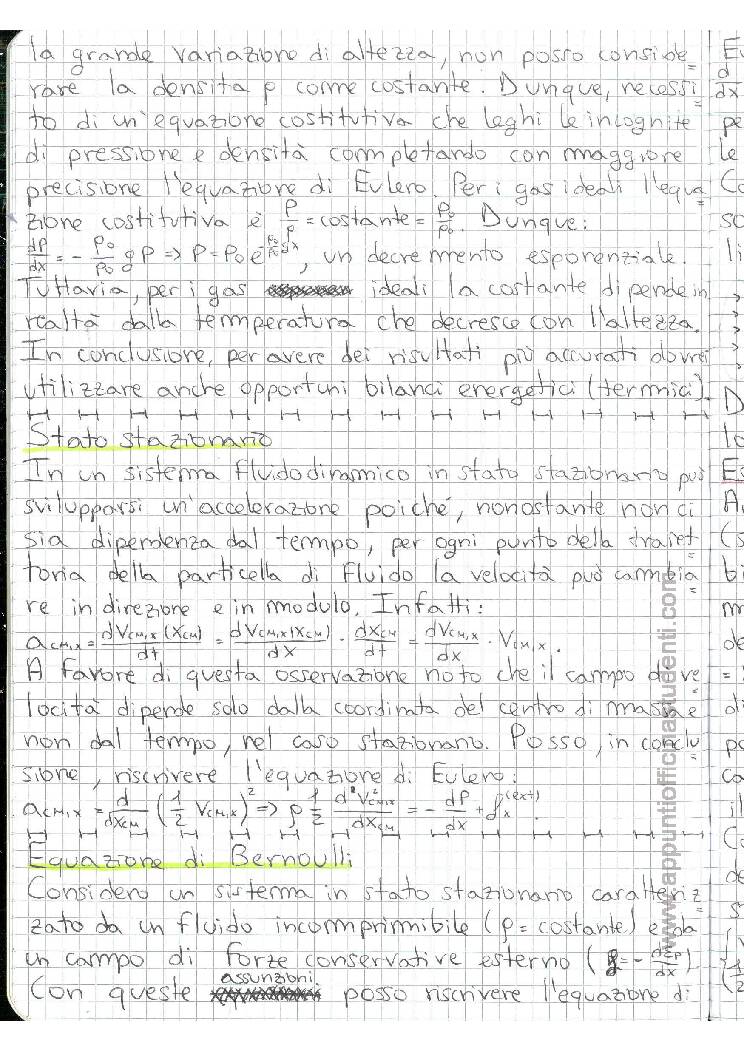 la grande variazione di altezza, non posso conside=
rare la densità ρ come costante. Dunque, necessi=
to di un'equazione costitutiva che leghi le incognite
di pressione e densità completando con maggiore
precisione l'equazione di Eulero. Per i gas ideali l'equa=
zione costitutiva è P/ρ = costante = P₀/ρ₀. Dunque:
dP/dx = - ρ₀/P₀ g P => P = P₀ e^(-ρ₀/P₀ g x), un decremento esponenziale.
Tuttavia, per i gas ideali la costante dipende in
realtà dalla temperatura che decresce con l'altezza.
In conclusione, per avere dei risultati più accurati dovrei
utilizzare anche opportuni bilanci energetici (termici).
Stato stazionario
In un sistema fluidodinamico in stato stazionario può
svilupparsi un'accelerazione poiché, nonostante non ci
sia dipendenza dal tempo, per ogni punto della traiet=
toria della particella di fluido la velocità può cambia=
re in direzione e in modulo. Infatti:
a_CM,x = dV_CM,x (x_CM)/dt = dV_CM,x(x_CM)/dx · dx_CM/dt = dV_CM,x/dx · V_CM,x.
A favore di questa osservazione noto che il campo di ve=
locità dipende solo dalla coordinata del centro di massa e
non dal tempo, nel caso stazionario. Posso, in conclu=
sione, riscrivere l'equazione di Eulero:
a_CM,x = d/dx_CM (1/2 V_CM,x)² => ρ 1/2 d V²_CM,x/dx_CM = - dP/dx + f_x^(ext).
Equazione di Bernoulli
Considero un sistema in stato stazionario caratteriz=
zato da un fluido incomprimibile (ρ = costante) e da
un campo di forze conservative esterno ( = - dEp/dx).
Con queste assunzioni posso riscrivere l'equazione di
www.appuntiofficinastudenti.com